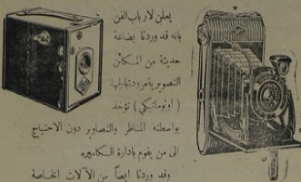 يعلن لارباب الفن
بانه قد وردنا بضاعة
حديثة من المكائن
التصوير بامزودتها
( اوتوماتيكي ) تؤخذ
بواسطته المناظر والتصاوير دون الاحتياج
الى من يقوم بادارة الكاميره
وقد وردنا ايضاً من الآلات الخاصة